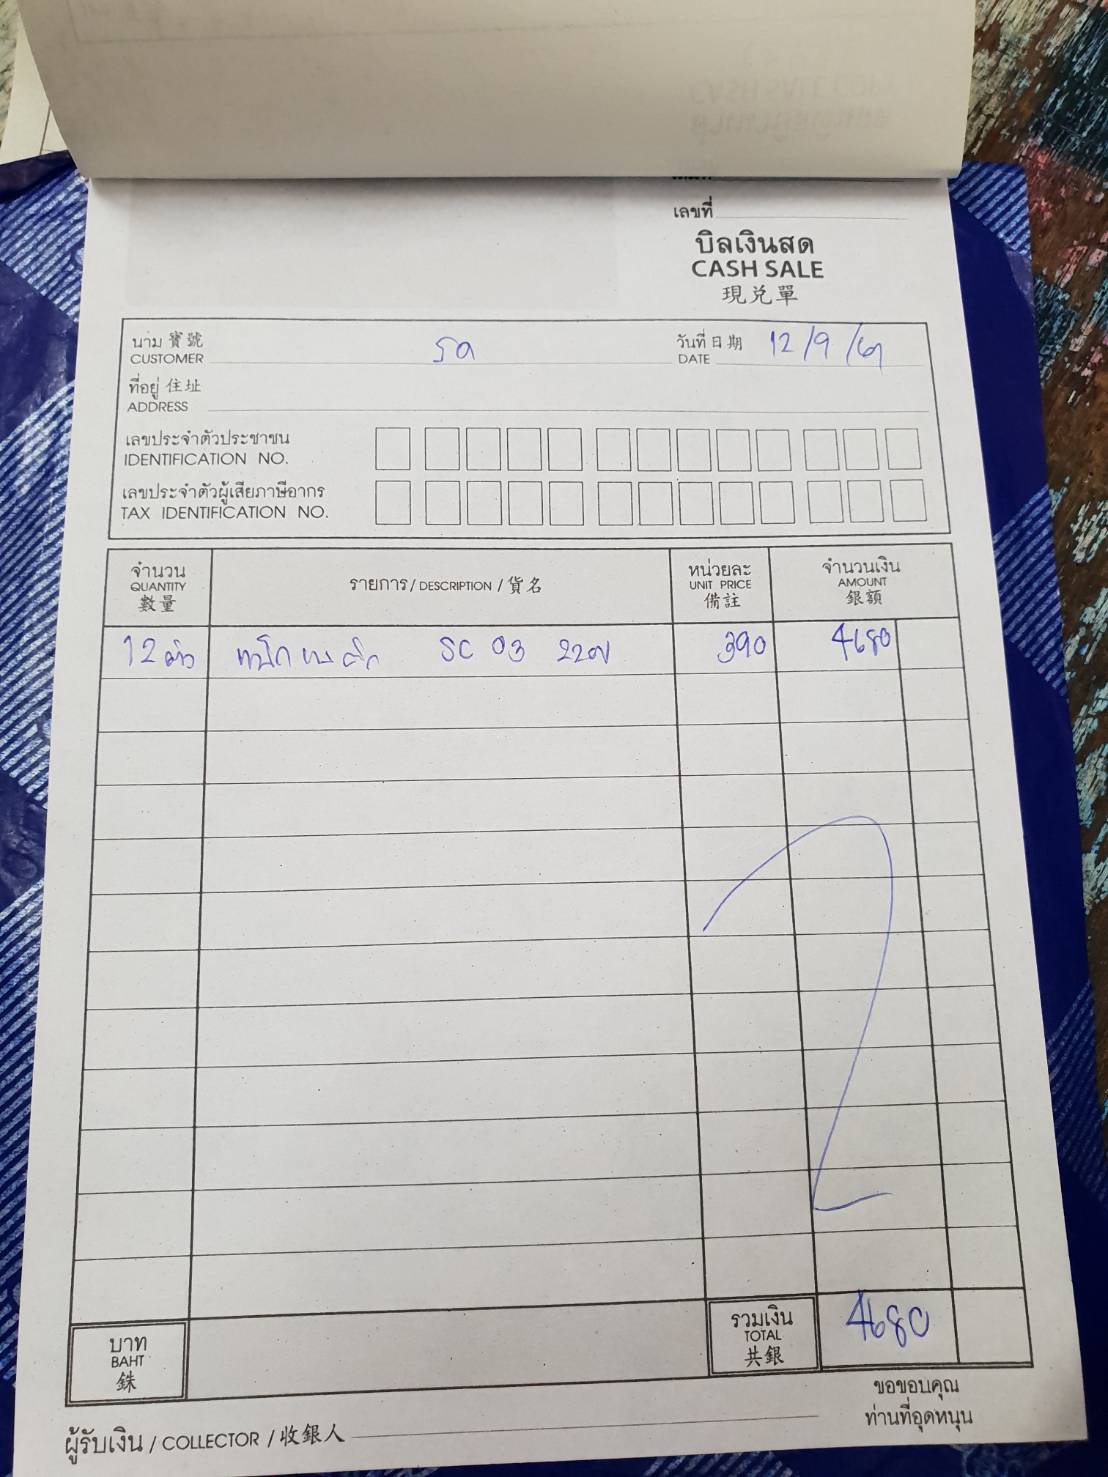 เลขที่
บิลเงินสด
CASH SALE
現兌單
นาม寶號
CUSTOMER
วันที่日期 12/9/67
DATE
ที่อยู่住址
ADDRESS
เลขประจำตัวประชาชน
IDENTIFICATION NO.
เลขประจำตัวผู้เสียภาษีอากร
TAX IDENTIFICATION NO.
จำนวน
QUANTITY
數量
รายการ/DESCRIPTION/貨名
หน่วยละ
UNIT PRICE
備註
จำนวนเงิน
AMOUNT
銀額
12 ตัว SC 03 220V 390 4680
บาท
BAHT
銖
รวมเงิน
TOTAL
共銀
4680
ขอขอบคุณ
ท่านที่อุดหนุน
ผู้รับเงิน/COLLECTOR/收銀人